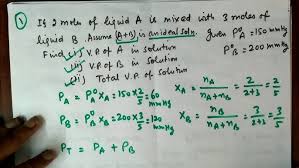 ① If 2 moles of liquid A is mixed with 3 moles of
liquid B. Assume (A+B) is an ideal soln. Given P°A = 150 mmHg
P°B = 200 mmHg
Find (i) V.P of A in solution
(ii) V.P of B in solution
(iii) Total V.P of solution
PA = P°A XA = 150 × 2/5 = 60 mmHg
XA = nA/(nA+nB) = 2/(2+3) = 2/5
PB = P°B XB = 200 × 3/5 = 120 mmHg
XB = nB/(nA+nB) = 3/(2+3) = 3/5
PT = PA + PB